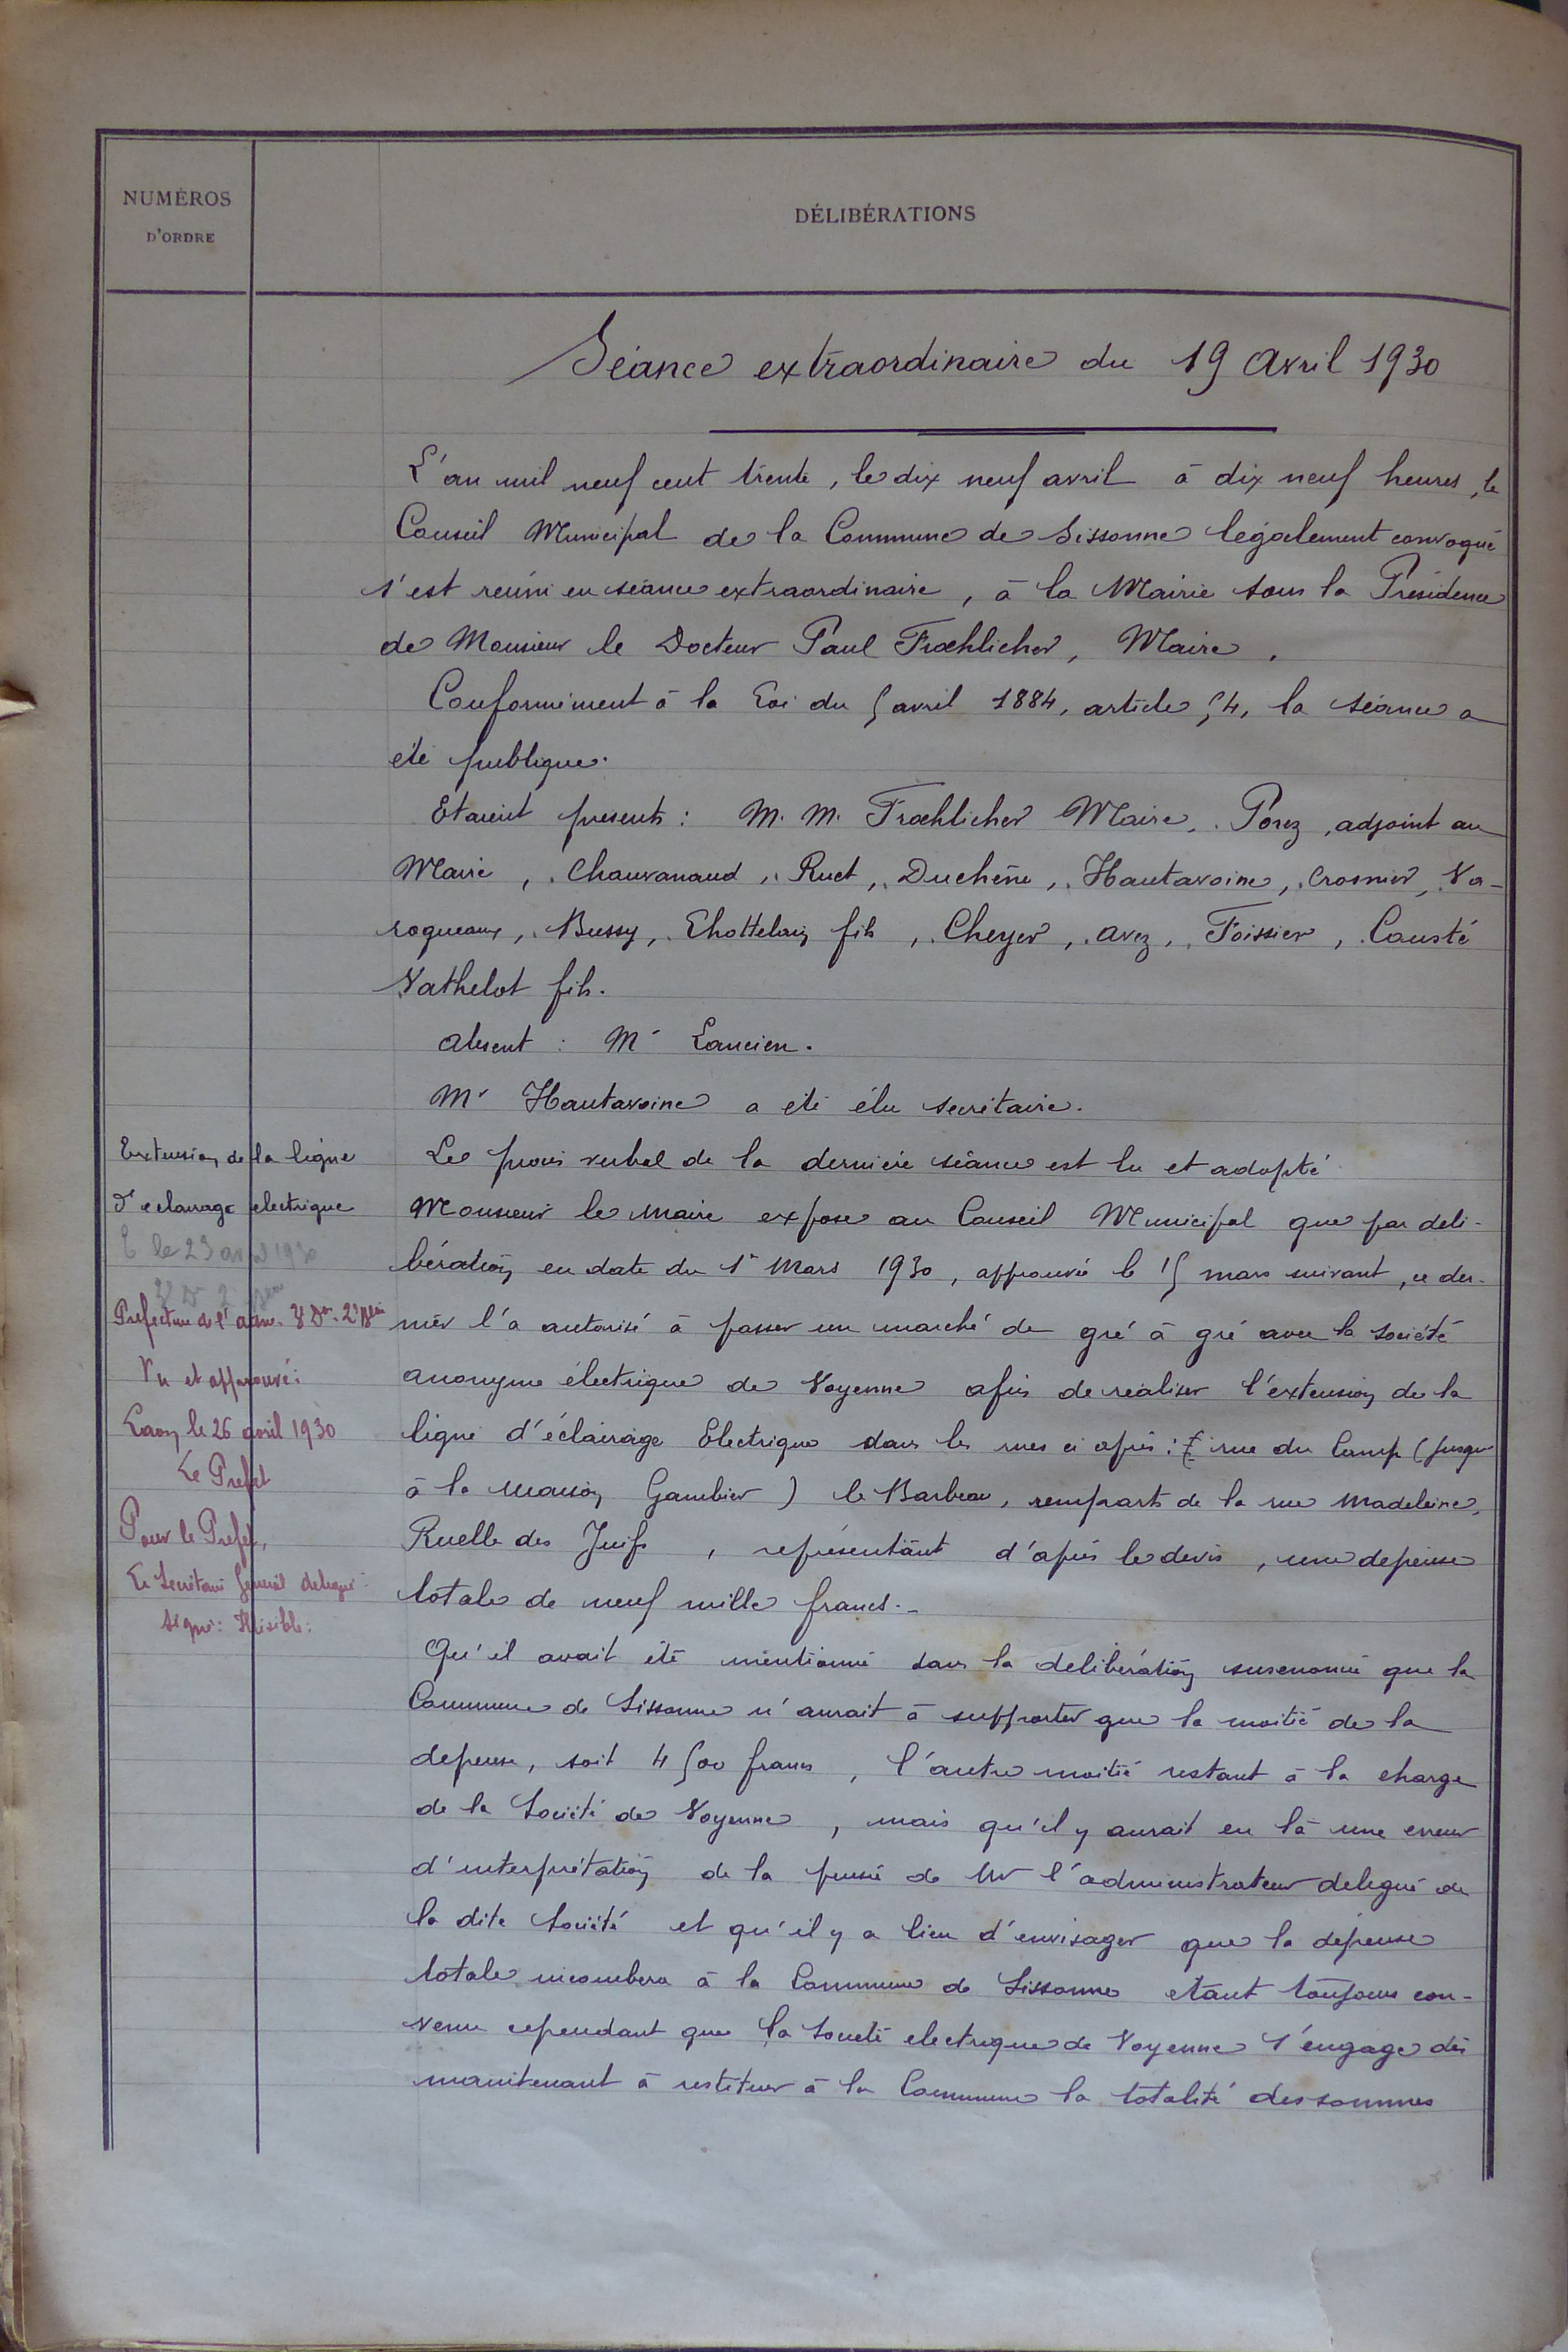 NUMÉROS
D'ORDRE
DÉLIBÉRATIONS
Séance extraordinaire du 19 Avril 1930
L'an mil neuf cent trente, le dix neuf avril à dix neuf heures, le
Conseil Municipal de la Commune de Sissonne légalement convoqué
s'est réuni en séance extraordinaire, à la Mairie sous la Présidence
de Monsieur le Docteur Paul Froehlicher, Maire.
Conformément à la Loi du 5 avril 1884, article 54, la séance a
été publique.
Etaient présents : M. M. Froehlicher Maire, Porez, adjoint au
Maire, Chauvanaud, Ruet, Duchêne, Hautavoine, Crosnier, Va-
roqueaux, Bussy, Chottelain fils, Cheyer, Avez, Foissier, Cousté
Vathelot fils.
Absent : Mr Lancien.
Mr Hautavoine a été élu secrétaire.
Extension de la ligne
d'éclairage électrique
le 23 avril 1930
Préfecture de l'Aisne. 3e Don. 2e Bau
Vu et approuvé :
Laon, le 26 avril 1930
Le Préfet
Pour le Préfet,
Le Secrétaire Général délégué
signé : Illisible :
Le procès verbal de la dernière séance est lu et adopté
Monsieur le Maire expose au Conseil Municipal que par déli-
bération en date du 1r Mars 1930, approuvée le 15 mars suivant, ce der-
nier l'a autorisé à passer un marché de gré à gré avec la Société
anonyme électrique de Voyenne afin de réaliser l'extension de la
ligne d'éclairage Electrique dans les rues ci après : rue du Camp (jusqu'
à la maison Gambier) le Barbeau, remparts de la rue Madeleine,
Ruelle des Juifs, représentant d'après le devis, une dépense
totale de neuf mille francs.-
Qu'il avait été mentionné dans la délibération susénoncée que la
Commune de Sissonne n'aurait à supporter que la moitié de la
dépense, soit 4500 francs, l'autre moitié restant à la charge
de la Société de Voyenne, mais qu'il y aurait eu là une erreur
d'interprétation de la pensée de Mr l'administrateur délégué de
la dite Société et qu'il y a lieu d'envisager que la dépense
totale incombera à la Commune de Sissonne étant toujours con-
venu cependant que la Société électrique de Voyenne s'engage dès
maintenant à restituer à la Commune la totalité des sommes